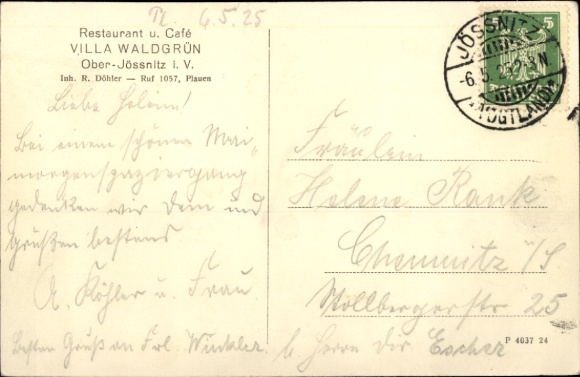 6.5.25
Restaurant u. Café
VILLA WALDGRÜN
Ober-Jössnitz i. V.
Inh. R. Döhler — Ruf 1057, Plauen
Liebe
Bei einem schönen Mai-
morgenspaziergang
gedenken wir Dein und
grüßen bestens
A. Köhler u. Frau
Besten Gruß an Frl. Winkler.
5
JÖSSNITZ
-6.5.25.2-3N
(VOGTLAND)
Fräulein
Helene Rank
Chemnitz i/S.
Stollbergerstr 25
b. Herrn Dir Escher
P 4037 24